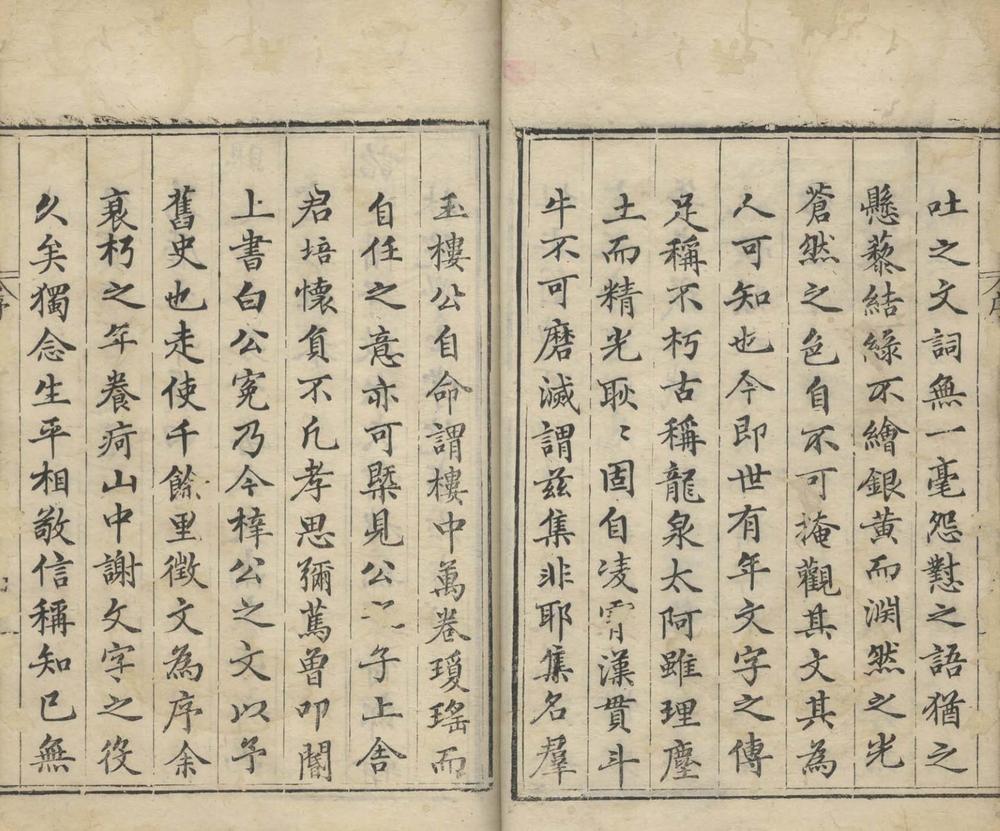 吐之文詞無一毫怨懟之語猶之
懸藜結綠不繪銀黃而淵然之光
蒼然之色自不可掩觀其文其為
人可知也今即世有年文字之傳
足稱不朽古稱龍泉太阿雖理塵
土而精光耿〻固自凌霄漢貫斗
牛不可磨滅謂茲集非耶集名羣
玉樓公自命謂樓中萬卷瓊瑤而
自任之意亦可槩見公之子上舍
君培懷負不凡孝思彌篤曾叩閽
上書白公寃乃今梓公之文以予
舊史也走使千餘里徵文為序余
衰朽之年養疴山中謝文字之役
久矣獨念生平相敬信稱知已無